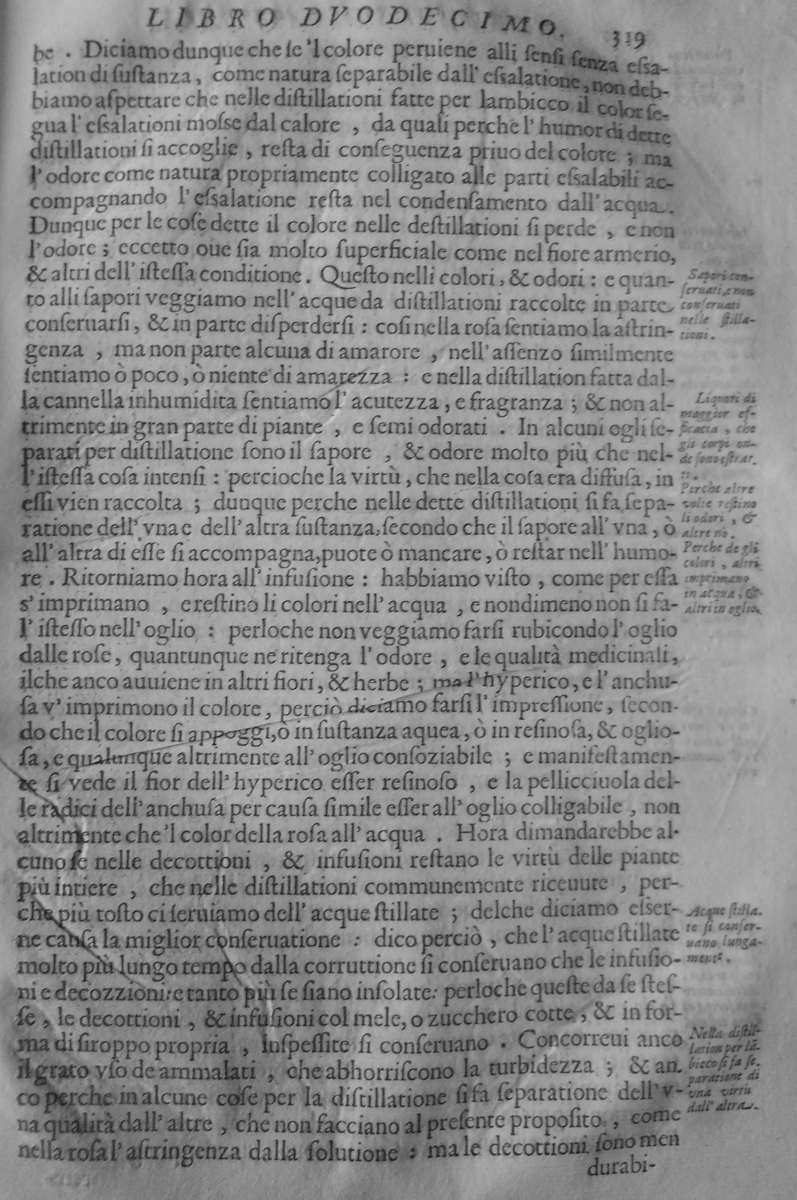 LIBRO DVODECIMO. 319
be. Diciamo dunque che ſe 'l colore peruiene alli ſenſi ſenza eſſa-
lation di ſuſtanza, come natura ſeparabile dall' eſſalatione, non deb-
biamo aſpettare che nelle diſtillationi fatte per lambicco il color ſe-
gua l' eſſalationi moſſe dal calore, da quali perche l' humor di dette
diſtillationi ſi accoglie, reſta di conſeguenza priuo del colore; ma
l' odore come natura propriamente colligato alle parti eſſalabili ac-
compagnando l' eſſalatione reſta nel condenſamento dall' acqua.
Dunque per le coſe dette il colore nelle deſtillationi ſi perde, e non
l' odore; eccetto oue ſia molto ſuperficiale come nel fiore armerio,
& altri dell' iſteſſa conditione. Queſto nelli colori, & odori: e quan-
to alli ſapori veggiamo nell' acque da diſtillationi raccolte in parte
conſeruarſi, & in parte diſperderſi: coſi nella roſa ſentiamo la aſtrin-
genza, ma non parte alcuna di amarore, nell' aſſenzo ſimilmente
ſentiamo ò poco, ò niente di amarezza: e nella diſtillation fatta dal-
la cannella inhumidita ſentiamo l' acutezza, e fragranza; & non al-
trimente in gran parte di piante, e ſemi odorati. In alcuni ogli ſe-
parati per diſtillatione ſono il ſapore, & odore molto più che nel-
l' iſteſſa coſa intenſi: percioche la virtù, che nella coſa era diffuſa, in
eſſi vien raccolta; dunque perche nelle dette diſtillationi ſi fa ſepa-
ratione dell' vna e dell' altra ſuſtanza, ſecondo che il ſapore all' vna, ò
all' altra di eſſe ſi accompagna, puote ò mancare, ò reſtar nell' humo-
re. Ritorniamo hora all' infuſione: habbiamo viſto, come per eſſa
s' imprimano, e reſtino li colori nell' acqua, e nondimeno non ſi fa-
l' iſteſſo nell' oglio: perloche non veggiamo farſi rubicondo l' oglio
dalle roſe, quantunque ne ritenga l' odore, e le qualità medicinali,
ilche anco auuiene in altri fiori, & herbe; ma l' hyperico, e l' anchu-
ſa v' imprimono il colore, perciò diciamo farſi l' impreſſione, ſecon-
do che il colore ſi appoggi, ò in ſuſtanza aquea, ò in reſinoſa, & oglio-
ſa, e qualunque altrimente all' oglio conſoziabile; e manifeſtamen-
te ſi vede il fior dell' hyperico eſſer reſinoſo, e la pellicciuola del-
le radici dell' anchuſa per cauſa ſimile eſſer all' oglio colligabile, non
altrimente che 'l color della roſa all' acqua. Hora dimandarebbe al-
cuno ſe nelle decottioni, & infuſioni reſtano le virtù delle piante
più intiere, che nelle diſtillationi communemente riceuute, per-
che più toſto ci ſeruiamo dell' acque ſtillate; delche diciamo eſſer-
ne cauſa la miglior conſeruatione: dico perciò, che l' acque ſtillate
molto più lungo tempo dalla corruttione ſi conſeruano che le infuſio-
ni e decozzioni: e tanto più ſe ſiano inſolate: perloche queſte da ſe ſteſ-
ſe, le decottioni, & infuſioni col mele, o zucchero cotte, & in for-
ma di ſiroppo propria, inſpeſſite ſi conſeruano. Concorreui anco
il grato vſo de ammalati, che abhorriſcono la turbidezza; & an
co perche in alcune coſe per la diſtillatione ſi fa ſeparatione dell' v-
na qualità dall' altre, che non facciano al preſente propoſito, come
nella roſa l' aſtringenza dalla ſolutione: ma le decottioni ſono men
durabi-
Sapori con-
ſeruati, e non
conſeruati
nelle ſtilla-
tioni.
Liquori di
maggior ef-
ficacia, che
gli corpi on-
de ſono eſtrat-
ti.
Perche altre
volte reſtino
li odori, &
altre no.
Perche de gli
colori, altri
imprimano
in acqua, &
altri in oglio.
Acque ſtilla-
te ſi conſer-
uano lunga-
mente.
Nella diſtil-
lation per lã
bicco ſi fa ſe-
paratione di
vna virtù
dall' altra.